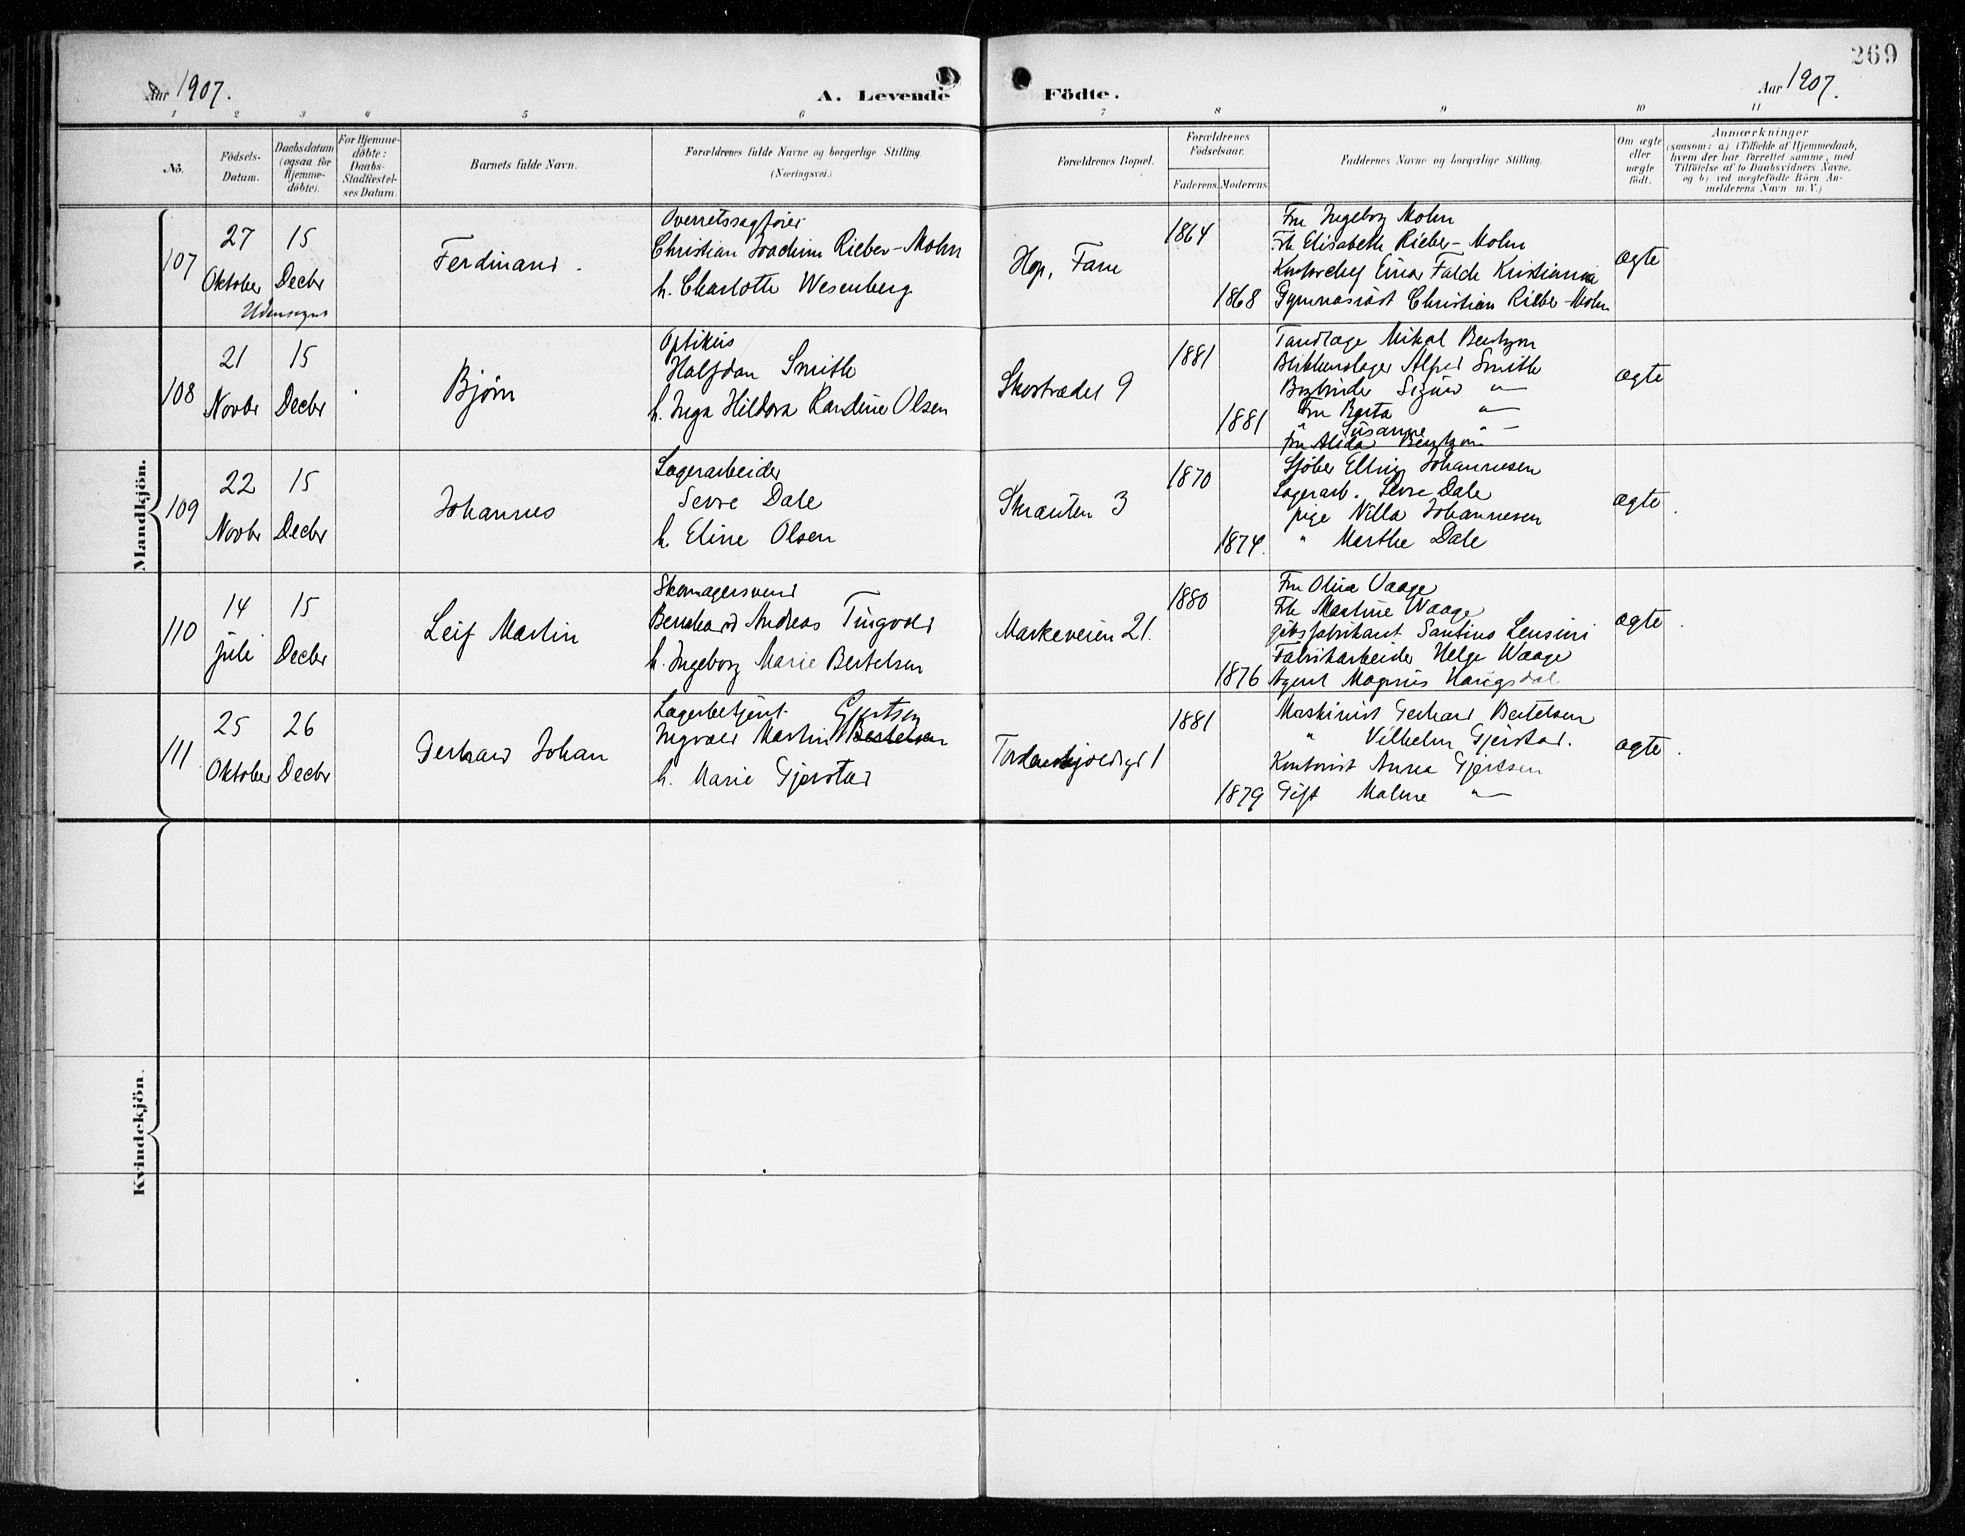 269
Aar 1907.
A. Levende Födte.
Aar 1907.
1 2 3 4 5 6 7 8 9 10 11
No.
Födsels-Datum.
Daabsdatum (ogsaa for Hjemmedöbte).
For Hjemmedöbte: Daabs-Stadfæstelses Datum.
Barnets fulde Navn.
Forældrenes fulde Navne og borgerlige Stilling. (Næringsvei.)
Forældrenes Bopæl.
Forældrenes Födselsaar.
Faderens. Moderens.
Faddernes Navne og borgerlige Stilling.
Om ægte eller uægte födt.
Anmærkninger
(saasom: a) i Tilfælde af Hjemmedaab,
hvem der har forrettet samme, med
Tilföielse af to Daabsvidners Navne,
og b) ved uægtefödte Börn An-
melderens Navn m. V.)
Mandkjön.
107
27 Oktober
15 Decbr
Udensogns
Ferdinand.
Overretssagfører
Christian Joachim Rieber-Mohn
h. Charlotte Wesenberg
Hop, Fane
1864
1868
Fru Ingeborg Mohn
Frk Elisabeth Rieber-Mohn
Kontorchef Einar Falck Kristiania
Gymnasiast Christian Rieber-Mohn
ægte
108
21 Novbr
15 Decbr
Bjørn
Optikus
Halfdan Smith
h. Inga Hildora Randine Olsen
Skostrædet 9
1881
1881
Tandlæge Mikal Bentzon
Blikkenslager Alfred Smith
Bogbinder Sigurd "
Fru Berta "
" Susanne "
Fru Alida Bentzon
ægte
109
22 Novbr
15 Decbr
Johannes
Lagerarbeider
Sevre Dale
h. Eline Olsen
Skranten 3
1870
1874.
Elling Johannesen
Lagerarb. Sevre Dale
pige Villa Johannesen
" Marthe Dale
ægte.
110
14 juli
15 Decbr
Leif Martin
Skomagersvend
Bernhard Andreas Tingvold
h. Ingeborg Marie Bertelsen
Markeveien 21.
1880
1876
Fru Olina Vaage
Frk Martine Waage
gibsfabrikant Santino Lensini
Fabrikarbeider Helge Waage
Agent Magnus Haugsdal
ægte.
111
25 Oktober
26 Decbr
Gerhard Johan
Lagerbetjent Gjertsen
Ingvald Martin Bertelsen
h. Marie Gjerstad
Tordenskjoldsgd 1
1881
1879
Maskinist Gerhard Bertelsen
" Vilhelm Gjerstad.
Kontorist Anna Gjertsen
Gift Malene "
ægte.
Kvindekjön.